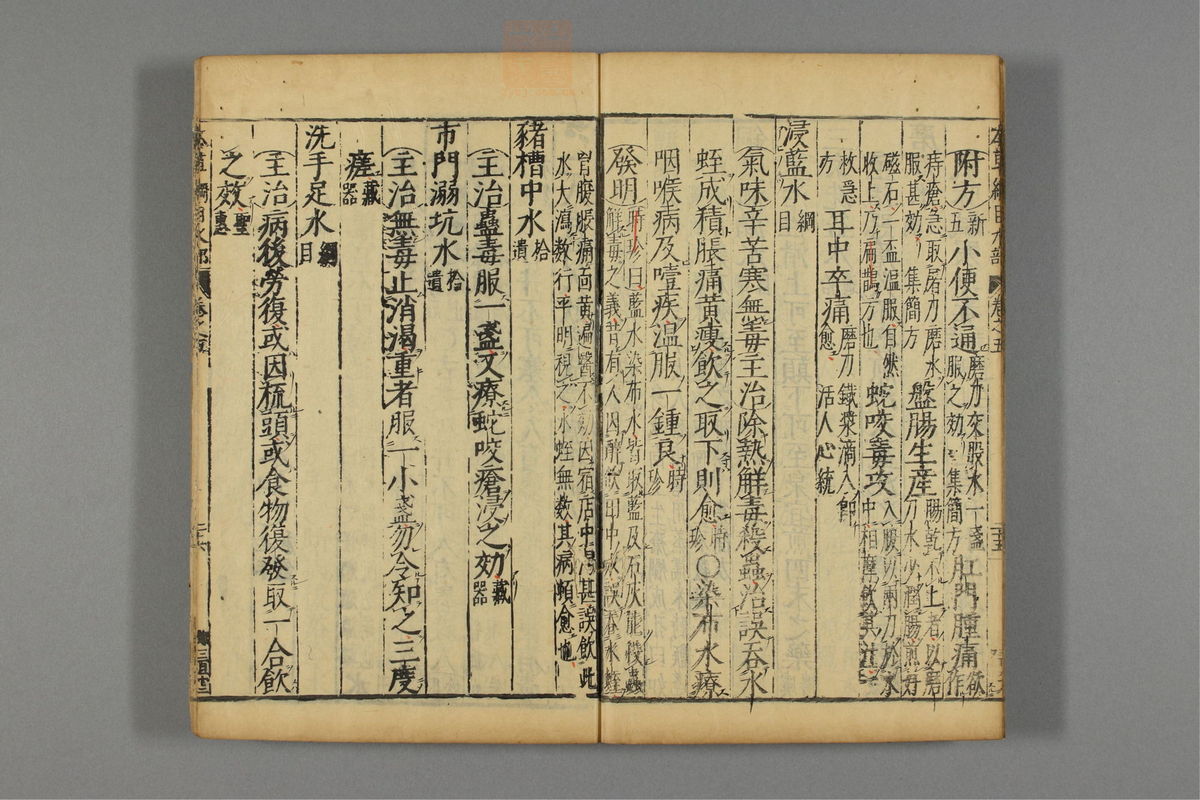 附方新五小便不通磨刀交股水一盞服之効集簡方肛門腫痛欲作
痔瘡急取屠刀磨水服甚効集簡方盤腸生產腸乾不上者以磨刀水少潤腸煎好
磁石一盃溫服自然收上乃扁鵲方也蛇咬毒攻入腹以兩刀於水中相摩飲其汁
救急方耳中卒痛磨刀鐵漿滴入即愈活人心統
浸藍水綱目
氣味辛苦寒無毒主治除熱解毒殺蟲治誤吞水
蛭成積脹痛黃瘦飲之取下則愈時珍〇染布水療
咽喉病及噎疾溫服一鍾良時珍
發明時珍曰藍水染布水皆取藍及石灰能殺蟲解毒之義昔有人因醉飲田中水誤吞水蛭
胃腹脹痛面黃遍醫不効因宿店中渴甚誤飲此水大瀉數行平明視之水蛭無數其病頓愈也
豬槽中水拾遺
主治蠱毒服一盞又療蛇咬瘡浸之効藏器
市門溺坑水拾遺
主治無毒止消渴重者服一小盞勿令知之三度
瘥藏器
洗手足水綱目
主治病後勞復或因梳頭或食物復發取一合飲
之效聖惠
本草綱目水部
卷之五